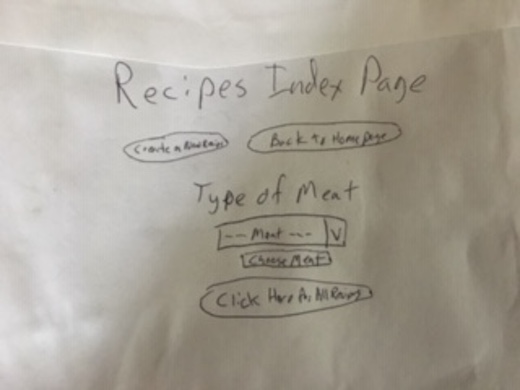 Recipes Index Page
Create a New Recipe
Back to Home Page
Type of Meat
--- Meat --- V
Choose Meat
Click Here for All Recipes